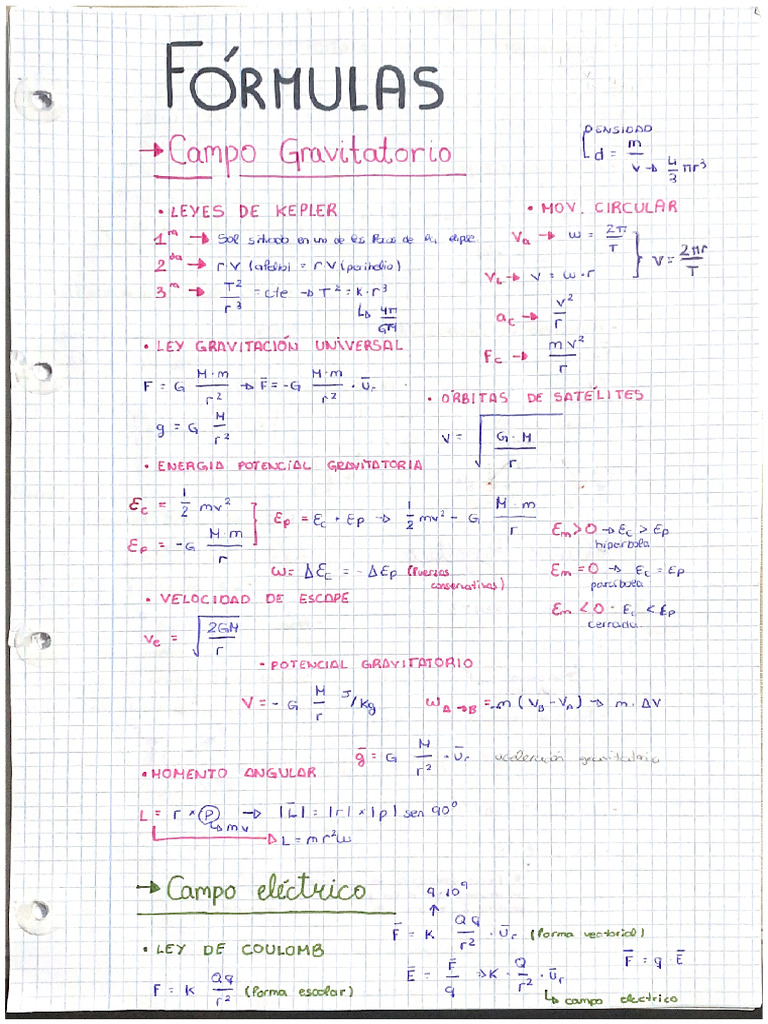 FÓRMULAS
→ Campo Gravitatorio
DENSIDAD
d = m/v → 4/3 πr³
• LEYES DE KEPLER
1ª → Sol situado en uno de los focos de la elipse
2da → r·v (afelio) = r v (perihelio)
3ª → T²/r³ = cte → T² = K·r³
↳ 4π/GM
• MOV. CIRCULAR
Va → ω = 2π/T
VL → v = ω·r
v = 2πr/T
ac → v²/r
Fc → mv²/r
• LEY GRAVITACIÓN UNIVERSAL
F = G M·m/r² → F̄ = -G M·m/r² · Ūr
g = G M/r²
• ÓRBITAS DE SATÉLITES
v = √(G·M/r)
• ENERGIA POTENCIAL GRAVITATORIA
Ec = 1/2 mv²
Ep = -G M·m/r
Ep = Ec + Ep → 1/2 mv² - G M·m/r
W = ΔEc = -ΔEp (fuerzas conservativas)
Em > 0 → Ec > Ep
hipérbola
Em = 0 → Ec = Ep
parábola
Em < 0 · Ec < Ep
cerrada
• VELOCIDAD DE ESCAPE
Ve = √(2GM/r)
• POTENCIAL GRAVITATORIO
V = -G M/r J/Kg
WA→B = -m (VB - VA) → m·ΔV
ḡ = G M/r² · Ūr aceleración gravitatoria
• MOMENTO ANGULAR
L = r × P → |L̄| = |r| × |p| sen 90°
↳ mv
→ L = mr²ω
→ Campo eléctrico
• LEY DE COULOMB
F = K Qq/r² (forma escolar)
9·10⁹
↑
F̄ = K Qq/r² · Ūr (forma vectorial)
Ē = F̄/q → K · Q/r² · Ūr
↳ campo electrico
F̄ = q · Ē